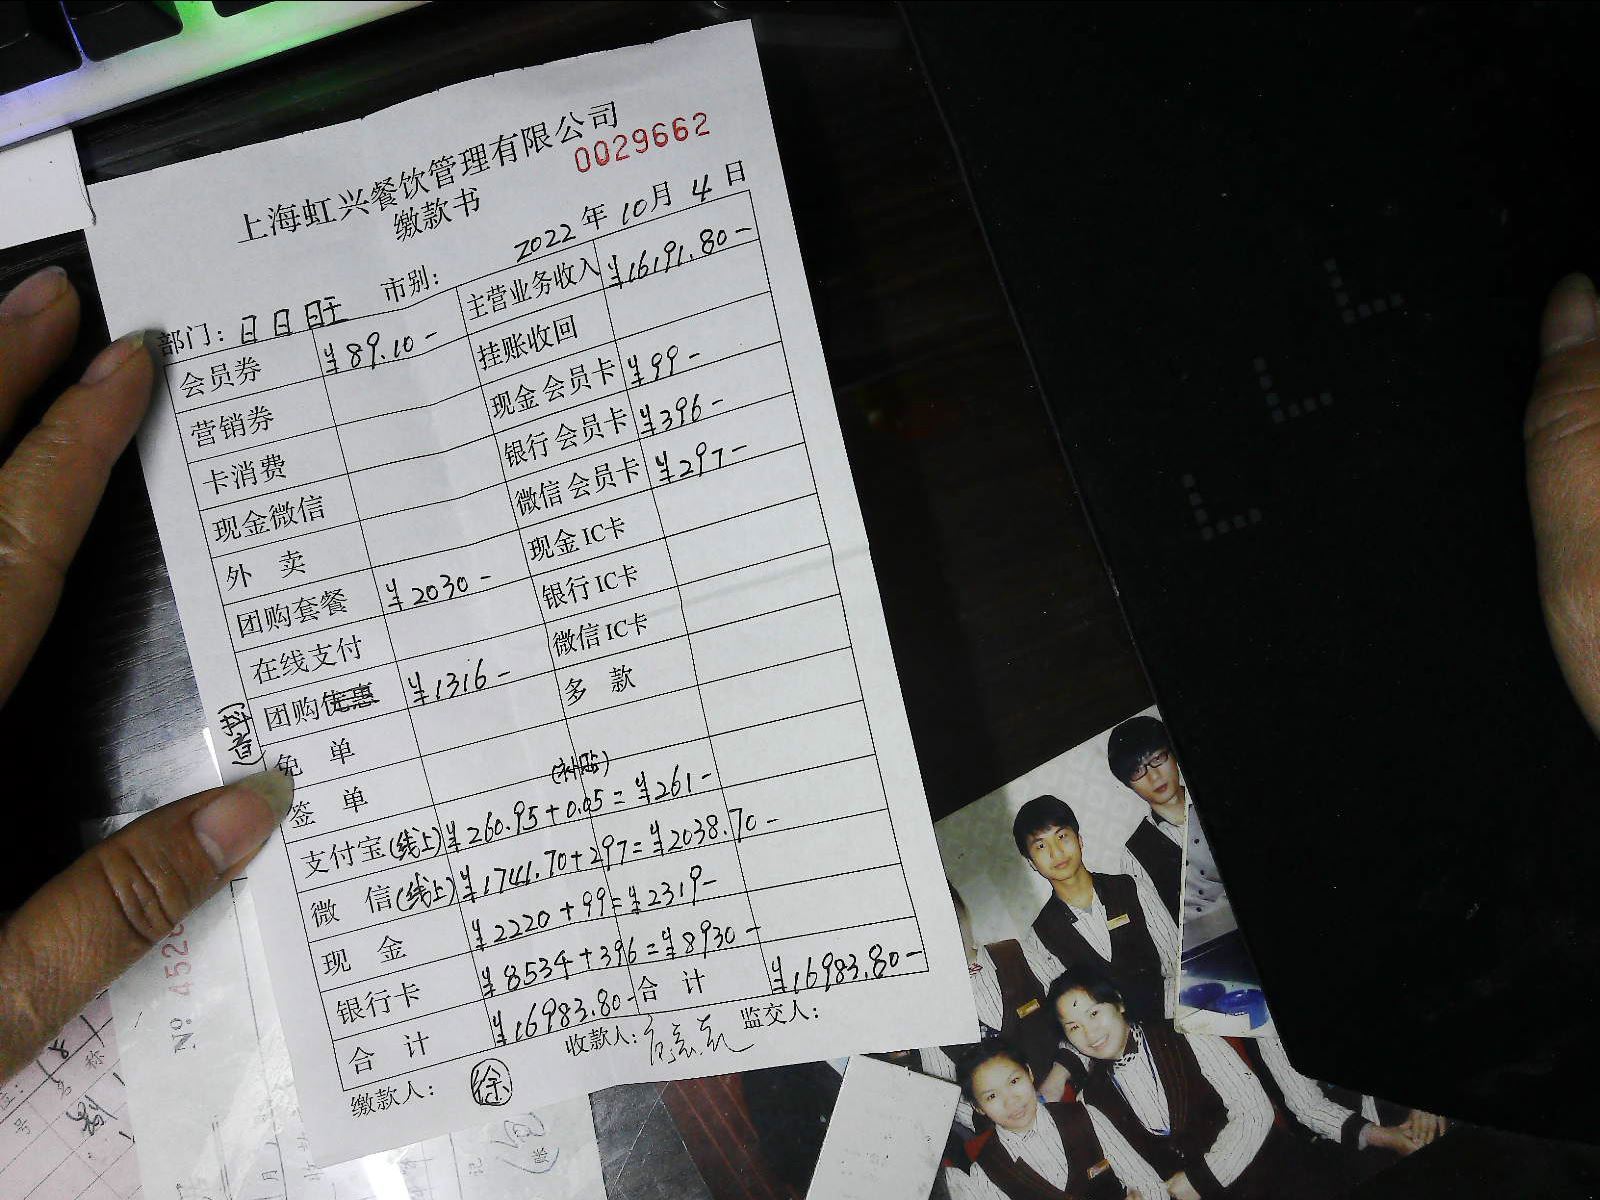 上海虹兴餐饮管理有限公司
缴款书
0029662
2022 年 10 月 4 日
部门：日日旺 市别：
会员券 ¥89.10- 主营业务收入 ¥16191.80-
营销券 挂账收回
卡消费 现金会员卡 ¥99-
现金微信 银行会员卡 ¥396-
外 卖 微信会员卡 ¥297-
团购套餐 ¥2030- 现金IC卡
在线支付 银行IC卡
团购优惠 (抖音) ¥1316- 微信IC卡
免 单 多 款
签 单
支付宝(线上) ¥260.95+0.05(补贴)=¥261-
微 信(线上) ¥1741.70+297=¥2038.70-
现 金 ¥2220+99=¥2319-
银行卡 ¥8534+396=¥8930-
合 计 ¥16983.80- 合 计 ¥16983.80-
缴款人：徐 收款人： 监交人：
№ 452
号 名 称